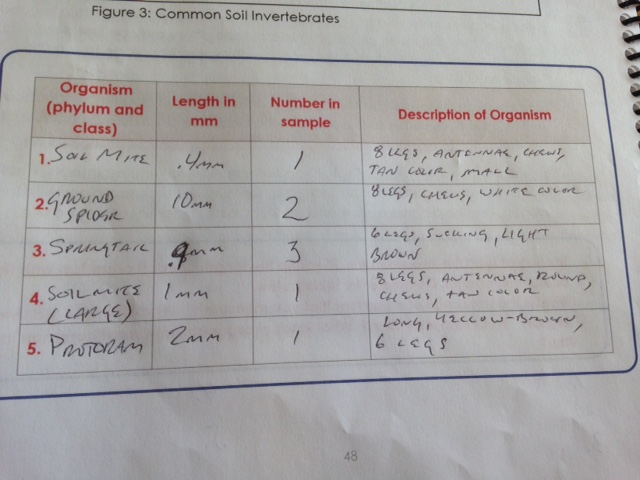 Figure 3: Common Soil Invertebrates
Organism
(phylum and
class)
Length in
mm
Number in
sample
Description of Organism
1. SOIL MITE
.4mm
1
8 LEGS, ANTENNAE, CHEWS,
TAN COLOR, MALL
2. GROUND
SPIDER
10mm
2
8 LEGS, CHEWS, WHITE COLOR
3. SPRINGTAIL
.9mm
3
6 LEGS, SUCKING, LIGHT
BROWN
4. SOIL MITE
(LARGE)
1mm
1
8 LEGS, ANTENNAE, ROUND,
CHEWS, TAN COLOR
5. PROTURAN
2mm
1
LONG, YELLOW-BROWN,
6 LEGS
48